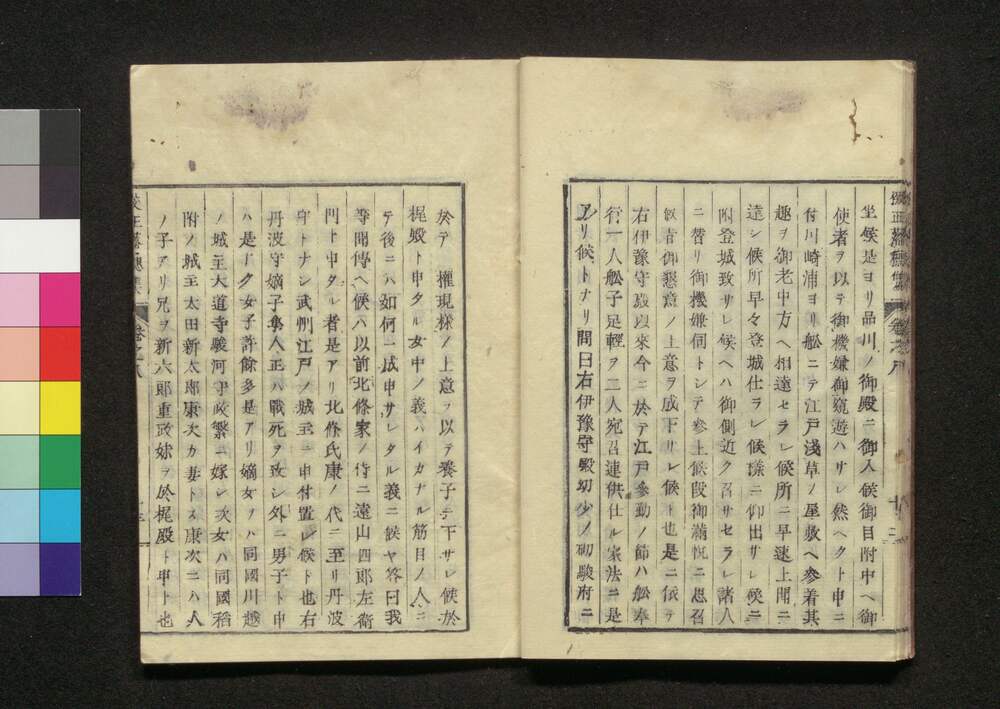 坐候是ヨリ品川ノ御殿ニ御入候御目附中ヘ御
使者ヲ以テ御機嫌御窺遊ハサレ然ヘクト申ニ
付川崎浦ヨリ舩ニテ江戸淺草ノ屋敷ヘ參着其
趣ヲ御老中方ヘ相達セラレ候所ニ早速上聞ニ
達シ候所早々登城仕ラレ候樣ニ仰出サレ候ニ
附登城致サレ候ヘハ御側近ク召サセラレ諸人
ニ替リ御機嫌伺トシテ參上候段御滿悦ニ思召
御懇意ノ上意ヲ成下サレ候ト也是ニ依テ
右伊豫守殿以來今ニ於テ江戸參勤ノ節ハ舩奉
行一人舩子足輕ヲ二人宛召連供仕ル家法ニ是
アリ候トナリ 問曰右伊豫守殿幼少ノ砌駿府ニ
於テ 權現樣ノ上意ヲ以テ養子ニ下サレ候於
梶殿ト申タル女中ノ義ハイカナル筋目ノ人ニ
テ後ニハ如何ニ成申サレタル義ニ候ヤ答曰我
等聞傳ヘ候ハ以前北條家ノ侍ニ遠山四郎左衛
門ト申タル者是アリ北條氏康ノ代ニ至リ丹波
守トナシ武州江戸ノ城主ニ申付置レ候ト也右
丹波守嫡子隼人正ハ戰死ヲ致シ外ニ男子ト申
ハ是ナク女子許餘多是アリ嫡女ヲハ同國川越
ノ城主大道寺駿河守政繁ニ嫁シ次女ハ同國稻
附ノ城主太田新太郎康次カ妻トス康次ニハ人
ノ子アリ兄ヲ新六郎重政妹ヲ於梶殿ト申ト也